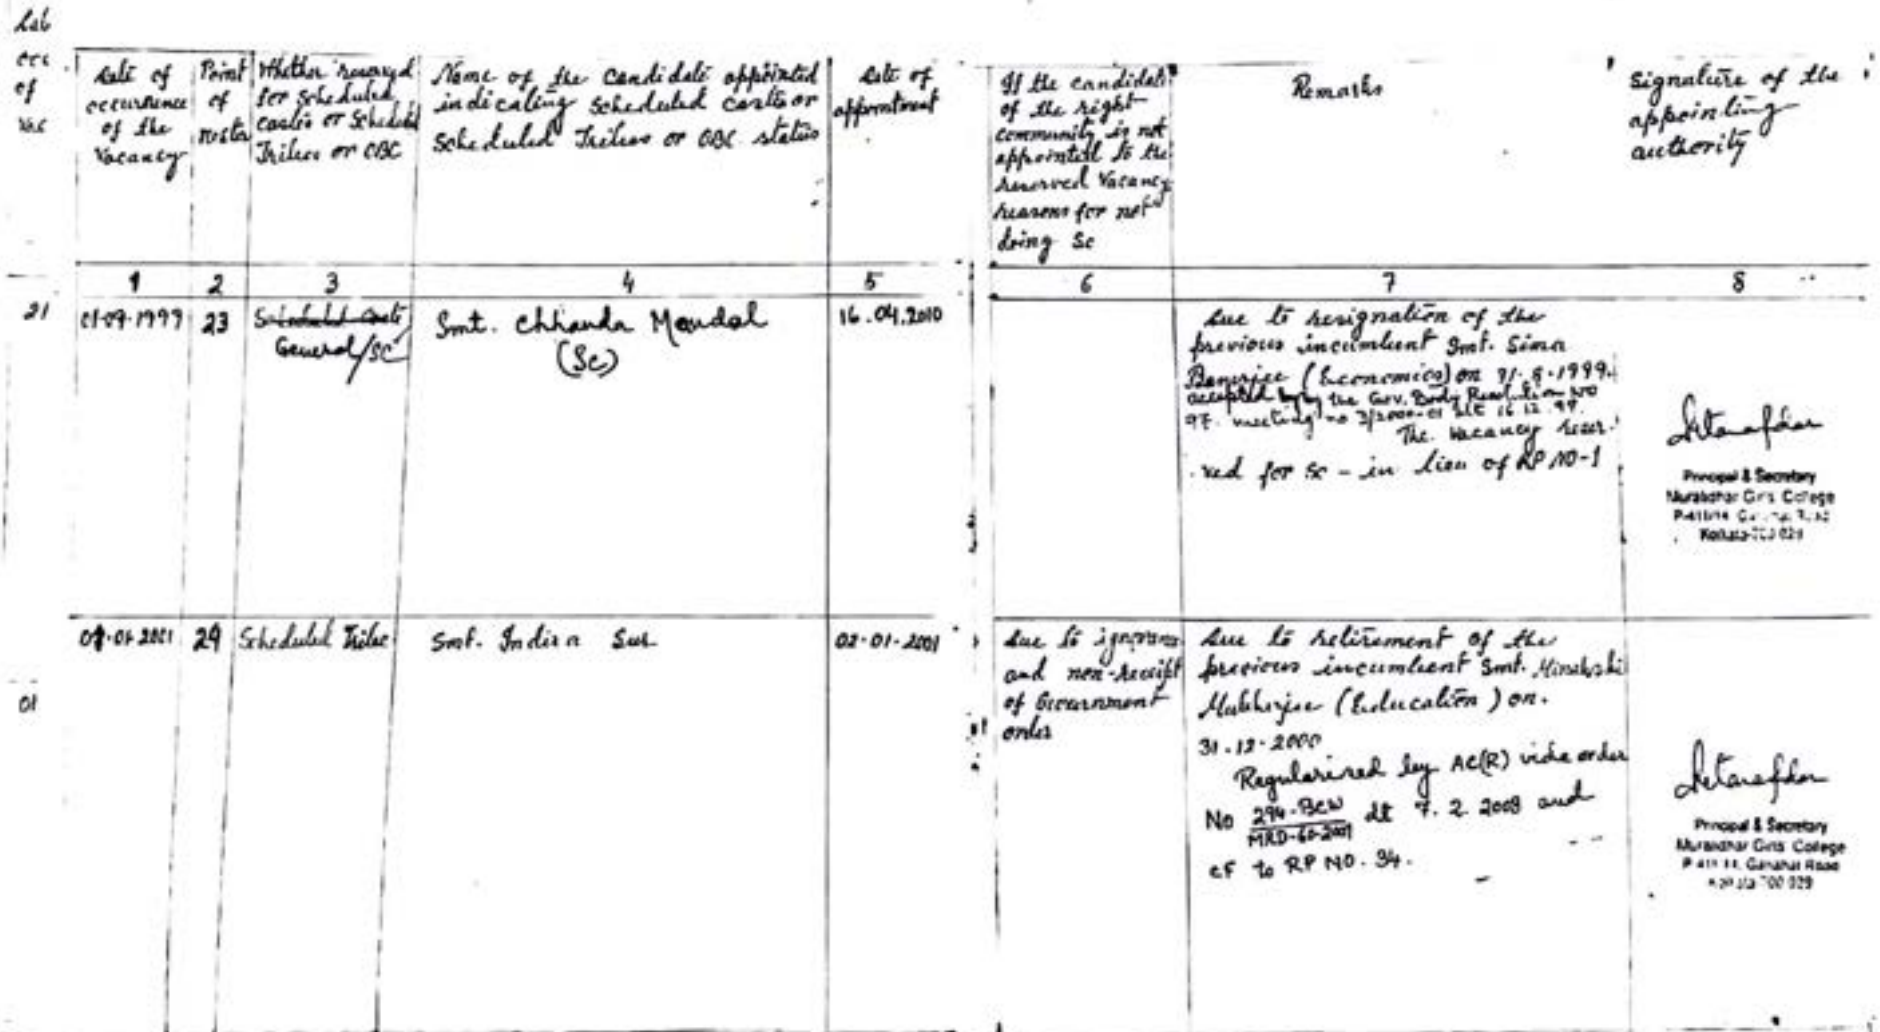 occ
of
Date of
occurrence
of the
Vacancy
Point
of
roster
Whether reserved
for scheduled
castes or Scheduled
Tribes or OBC
Name of the Candidate appointed
indicating scheduled castes or
Scheduled Tribes or OBC status
Date of
appointment
If the candidate
of the right
community is not
appointed to the
reserved Vacancy
reasons for not
doing so
Remarks
Signature of the
appointing
authority
1 2 3 4 5 6 7 8
21
01-09-1999
23
Scheduled Caste
General/SC
Smt. Chhanda Mondal
(SC)
16.04.2010
Due to resignation of the
previous incumbent Smt. Sima
Banerjee (Economics) on 31.8.1999.
accepted by the Gov. Body Resolution No
97. meeting no 3/2000-01 dt 16.12.99.
The Vacancy reser-
ved for SC - in lieu of RP NO-1
Principal & Secretary
Muralidhar Girls College
Kolkata-700 029
01
01-01-2001
29
Scheduled Tribe
Smt. Indira Sur
02-01-2001
Due to ignorance
and non-receipt
of Government
order
Due to retirement of the
previous incumbent Smt. Minakshi
Mukherjee (Education) on.
31.12.2000
Regularised by AC(R) vide order
No 294-BCW
MRD-60-2001
dt 7.2.2008 and
CF to RP NO. 34.
Principal & Secretary
Muralidhar Girls College
P-411/14, Gariahat Road
Kolkata-700 029